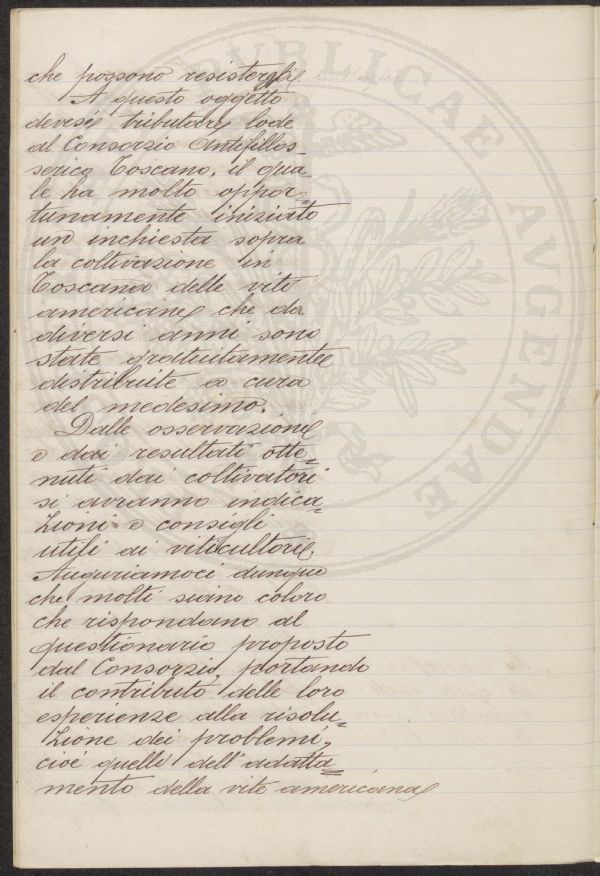 che possono resistergli
A questo oggetto
devesi tributare lode
al Consorzio Antifillos=
serico Toscano, il qua=
le ha molto oppor=
tunamente iniziato
un inchiesta sopra
la coltivazione in
Toscana delle viti
americane che da
diversi anni sono
state gratuitamente
distribuite a cura
del medesimo.
Dalle osservazioni
e dai resultati otte=
nuti dai coltivatori
si avranno indica=
zioni e consigli
utili ai viticultori.
Auguriamoci dunque
che molti siano coloro
che rispondano al
questionario proposto
dal Consorzio, portando
il contributo delle loro
esperienze alla risolu=
zione dei problemi,
cioè quelli dell'adatta=
mento della vite americana
PVBLICAE AVGENDAE